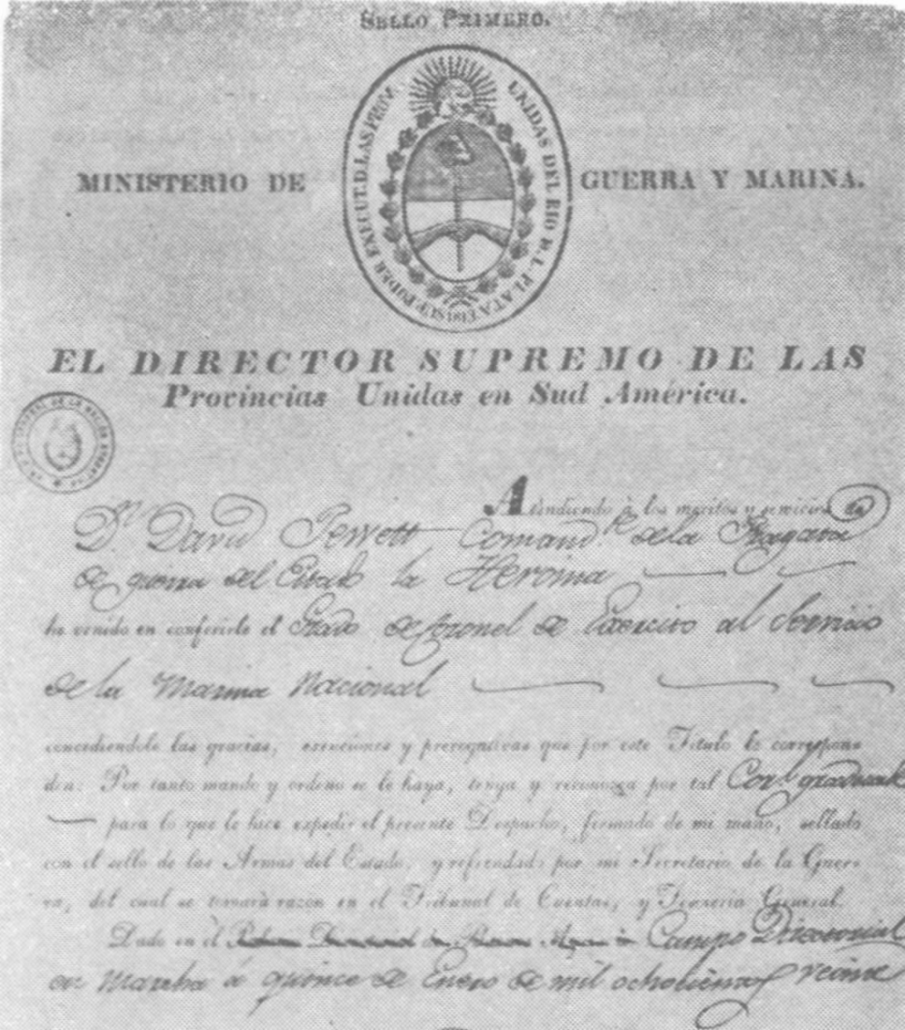 SELLO PRIMERO.
MINISTERIO DE GUERRA Y MARINA.
SUP. PODER EXECUT. D. LAS PROV. UNIDAS DEL RIO D. L. PLATA
EL DIRECTOR SUPREMO DE LAS
Provincias Unidas en Sud América.
Atendiendo à los meritos y servicios de
Dn. David Jewett Comandte. de la Fragata
de guerra del Estado la Heroina
he venido en conferirle el Grado de Coronel de Exercito al Servicio
de la Marina Nacional
concediendole las gracias, esenciones y prerogativas que por este Titulo le correspon-
den: Por tanto mando y ordeno se le haya, tenga y reconozca por tal Corl. graduado
para lo que le hice expedir el presente Despacho, firmado de mi mano, sellado
con el sello de las Armas del Estado, y refrendado por mi Secretario de la Guer-
ra, del cual se tomará razon en el Tribunal de Cuentas, y Tesoreria General.
Dado en el Campo Directorial
en marcha à quince de Enero de mil ochocientos veinte